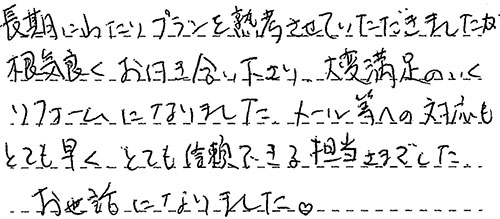 長期にわたりプランを熟考させていただきましたが
根気良くお付き合い下さり、大変満足のいく
リフォームになりました。メール等への対応も
とても早く、とても信頼できる担当さまでした。
お世話になりました♡